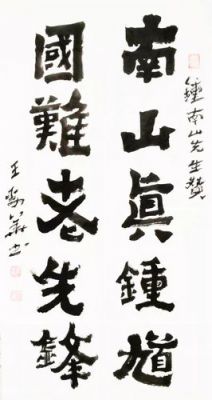 鍾南山先生贊
南山眞鍾馗
國難老先鋒
王